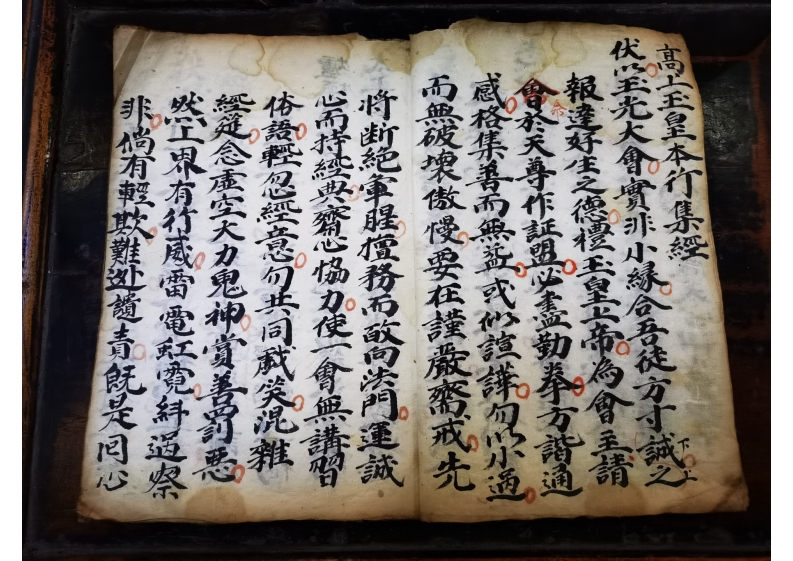 高上玉皇本行集經
伏以玉光大會實非小緣合吾徒方寸誠之
下上
報達好生之德禮玉皇上帝為會主請
會於天尊作証盟必盡勤拳方諧通
命
感格集善而無益或似諠譁勿以小過
而無破壞傲慢要在謹嚴齋戒先
將断絕軍腥擅務而敢向法門運誠
心而持經典齋心恊力使一會無講習
俗語輕忽經意勿共同戯笑混雜
經筵念虛空大力鬼神賞善罰惡
然上界有行威雷電虹霓紏過察
非倘有輕欺難逃譴責既是同心